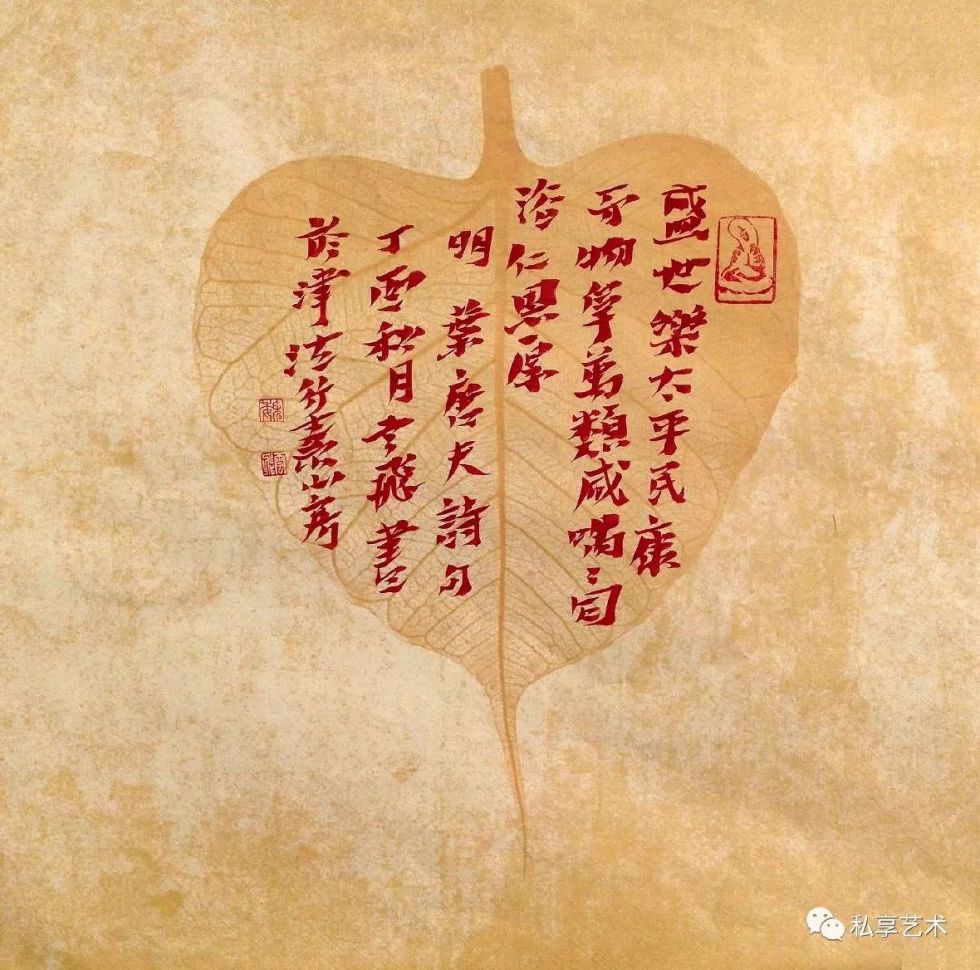 盛世樂太平民康
而物阜萬類咸喁〻同
洽仁恩厚
明 葉唐夫詩句
丁酉秋月云飛書
於津沽竹素山房
私享艺术